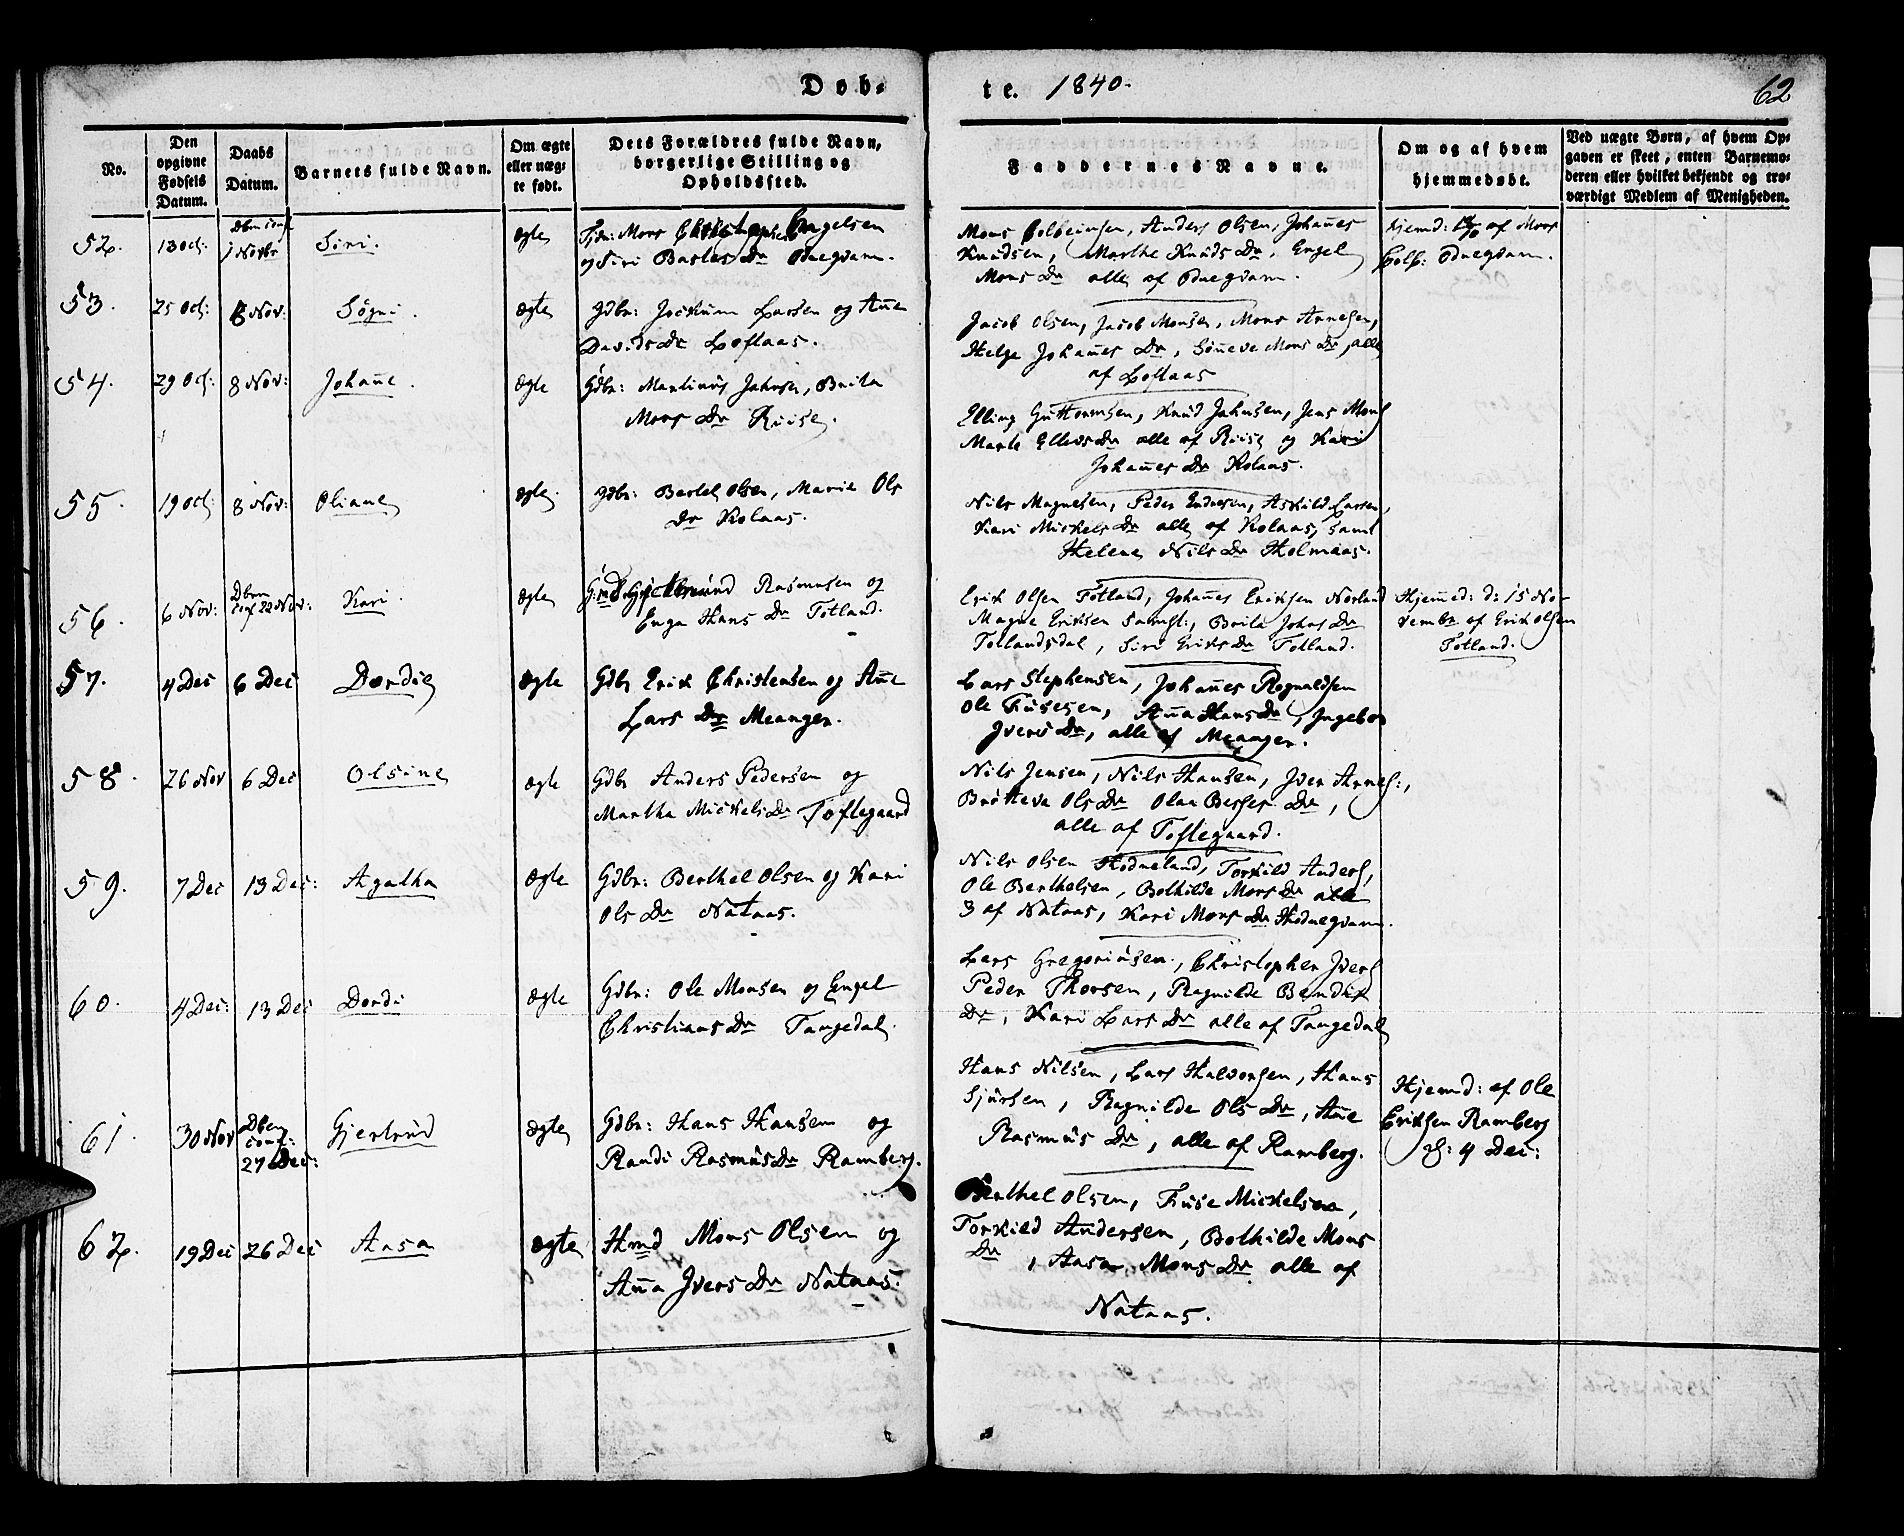 Døb-
te. 1840.
62
No.
Den opgivne Fødsels Datum.
Daabs Datum.
Barnets fulde Navn.
Om ægte eller uæg-te født.
Dets Forældres fulde Navn, borgerlige Stilling og Opholdssted.
Faddernes Navne.
Om og af hvem hjemmedøbt.
Ved uægte Børn, af hvem Op-gaven er skeet, enten Barnemo-deren eller hvilket bekjendt og tro-værdigt Medlem af Menigheden.
52. 13 Oct: Dben conf 1 Novbr Siri. ægte
Mons Christopher Engelsen
og Siri Dr Oduegvam.
Mons Anders Olsen, Johannes
Knudsen, Marthe Knuds Dr, Engel
Mons Dr alle af Oduegvam.
hjemd: af Mons
Oduegvam.
53. 25 Oct: 8 Nov: Søgni. ægte
Gdbr: Jochum Larsen og Añe
Davids Dr Loftaas.
Jacob Olsen, Jacob Monsen, Mons Arnesen,
Helge Johañes Dr, Søneve Mons Dr, alle
af Loftaas
54. 29 Oct: 8 Nov: Johañe. ægte
Gdbr: Martinus Jahnsen, Brita
Mons Dr Riise.
Elling Guttormsen, Knud Jahnsen, Jens Mons
Marte Ellevs Dr alle af Riise og Kari
Johañes Dr Rolaas.
55. 19 Oct: 8 Nov: Oliane ægte.
Gdbr: Bertel Olsen, Marie Ols
Dr Rolaas.
Nils Magnesen, Peder Endresen, Askild Larsen,
Kari Mickels Dr alle af Rolaas, samt
Helene Nils Dr Holmaas.
56. 6 Nov: Dben conf 22 Nov: Kari. ægte
Rasmusen og
Inga Hans Dr Totland.
Erik Olsen Totland, Johañes Eriksen Norland
Magne Eriksen samst:, Brita Johns Dr
Totlandsdal, Siri Eriks Dr Totland.
Hjemed: d: 15 No-
vembr af Erik Olsen
Totland.
57. 4 Dec 6 Dec Dordie ægte
Gdbr Erik Christensen og Añe
Lars Dr Meanger.
Lars Stephensen, Johañes Rognaldsen
Ole Fusesen, Aña Hans Dr, Ingebor
Ivers Dr, alle af Meanger.
58. 26 Nov 6 Dec Olsine ægte
Gdbr Anders Pedersen og
Martha Mickels Dr Toftegaard
Nils Jensen, Nils Hansen, Iver Arnes:,
Brøtteva Ols Dr Olaa Berges Dr,
alle af Toftegaard.
59. 7 Dec 13 Dec: Agatha ægte
Gdbr: Berthel Olsen og Kari
Ols Dr Nataas.
Nils Olsen Hodneland, Torkild Anders,
Ole Berthelsen, Bothilde Mons Dr alle
3 af Nataas, Kari Mons Dr Hoduegvam.
60. 4 Dec: 13 Dec Dordi ægte
Gdbr: Ole Monsen og Engel
Christians Dr Tangedal.
Lars Gregoriusen., Christopher Ivers
Peder Thorsen, Ragnilde Bendix
Dr, Kari Lars Dr alle af Tangedal
61. 30 Nov Dben conf: 27 Dec: Gjertrud ægte
Gdbr: Hans Hansen og
Randi Rasmus Dr Ramberg.
Hans Nilsen, Lars Halvorsen, Hans
Sjursen, Ragnilde Ols Dr, Añe
Rasmus Dr, alle af Ramberg.
Hjemd: af Ole
Eriksen Ramberg
d: 4 Dec:
62. 19 Dec 26 Dec Aasa ægte
Hmd Mons Olsen og
Aña Ivers Dr Nataas.
Berthel Olsen, Fuse Mickelsen,
Torkild Andersen, Bothilde Mons
Dr, Aasa Mons Dr alle af
Nataas.